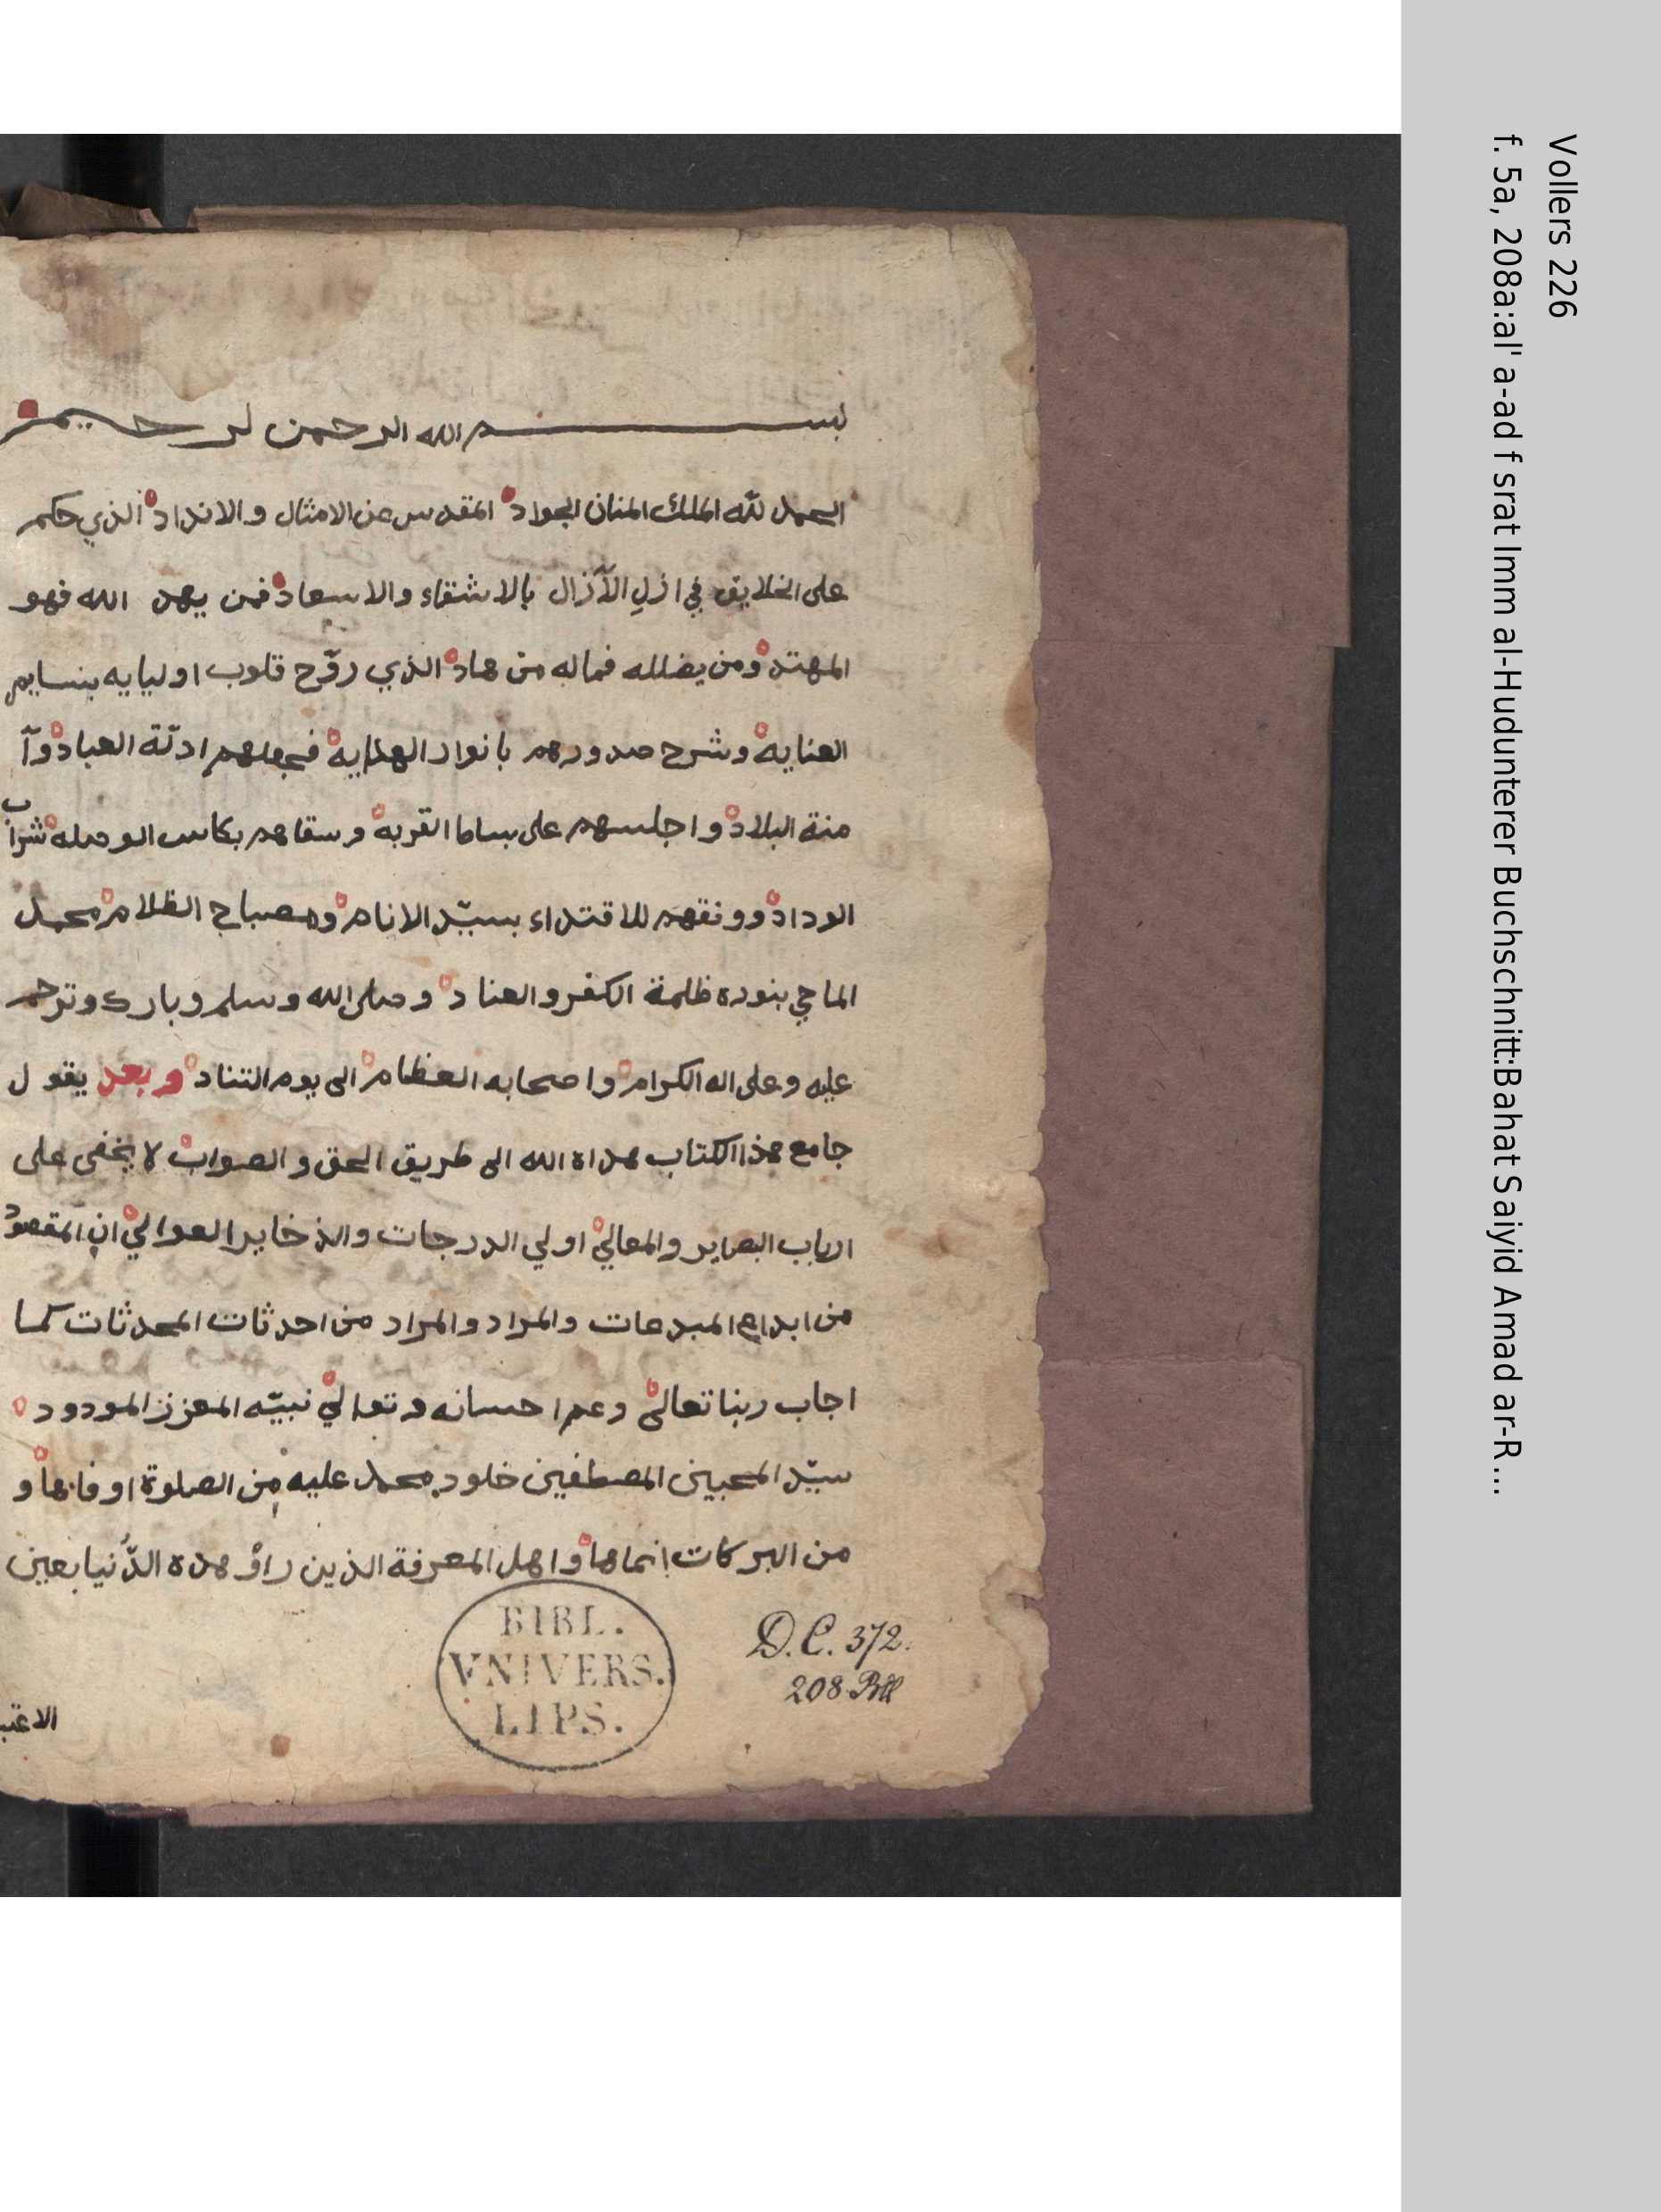 بسم الله الرحمن لرحيم
الحمد لله الملك المنان الجواد المقدس عن الامثال والانداد الذي حكم
على الخلايق في ازلِ الآزال بالاشقاء والاسعاد فمن يهد الله فهو
المهتد ومن يضلله فماله من هاد الذي روّح قلوب اوليايه بنسايم
العنايه وشرح صدورهم بانوار الهدايه فجعلهم ادلّة العباد وآ
منة البلاد واجلسهم على بساط القربه وسقاهم بكاس الوصله شراب
الوداد ووفقهم للاقتداء بسيّد الانام ومصباح الظلام محمد
الماحي بنوره ظلمة الكفر والعناد وصلى الله وسلم وبارك وترحم
عليه وعلى اله الكرام واصحابه العظام الى يوم التناد وبعد يقول
جامع هذا الكتاب هداه الله الى طريق الحق والصواب لا يخفى على
ارباب البصاير والمعالي اولي الدرجات والذخاير العوالي ان المقصود
من ابداع المبدعات والمراد والمراد من احدثات المحدثات كما
اجاب ربنا تعالى وعم احسانه وتعالي نبيّه المعزز المودود
سيّد المحبين المصطفين خلود محمد عليه من الصلوة اوفاها و
من البركات انماها واهل المعرفة الذين راؤ هذه الدُّنيا بعين
BIBL.
VNIVERS.
LIPS.
D.C. 372.
208 Bll
Vollers 226
f. 5a, 208a:al' a-ad f srat Imm al-Hudunterer Buchschnitt:Bahat Saiyid Amad ar-R...